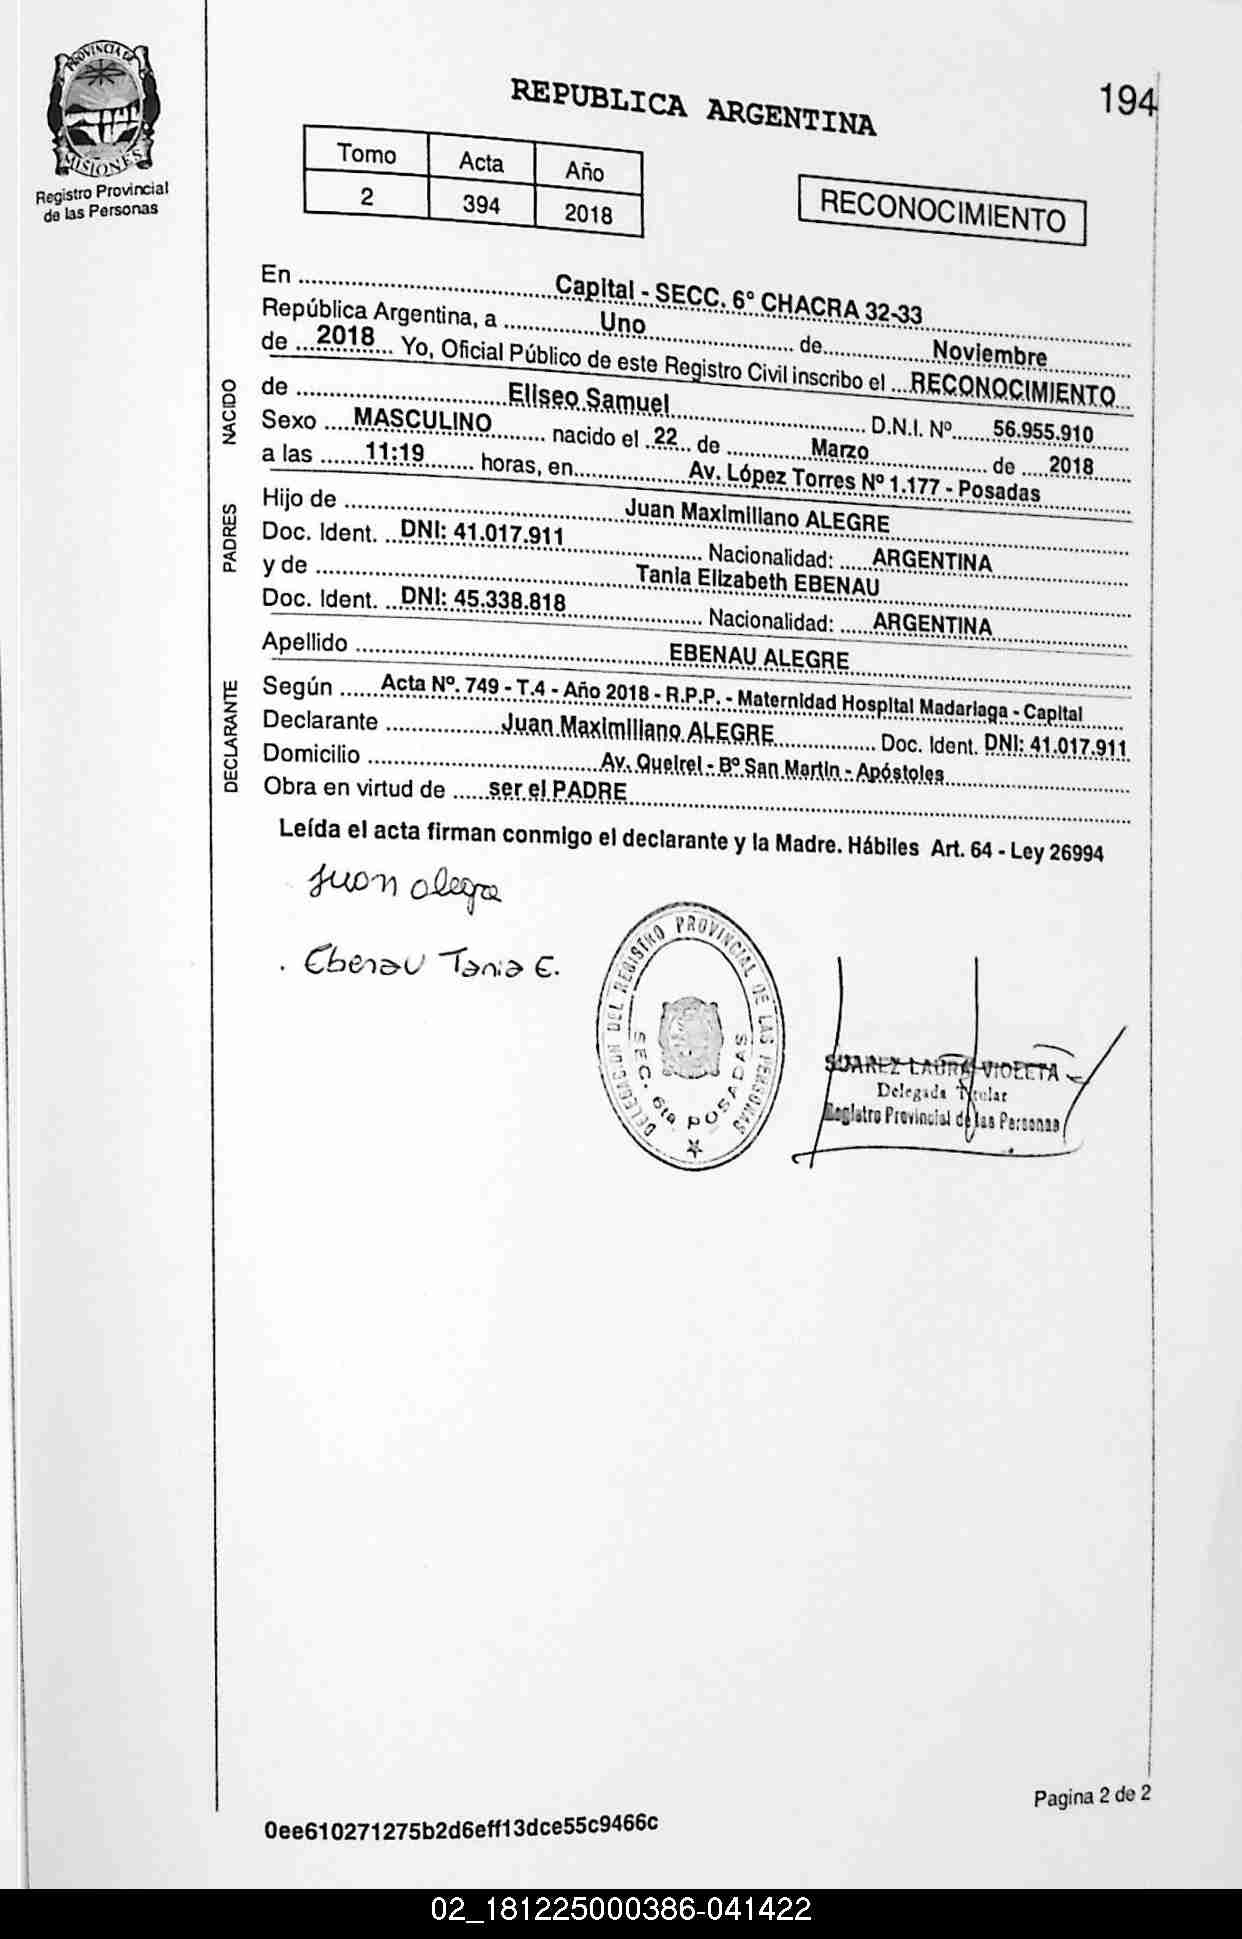 PROVINCIA DE
MISIONES
Registro Provincial
de las Personas
REPUBLICA ARGENTINA
194
Tomo Acta Año
2 394 2018
RECONOCIMIENTO
En ........ Capital - SECC. 6º CHACRA 32-33 ........
República Argentina, a ........ Uno ........ de ........ Noviembre ........
de ... 2018 ... Yo, Oficial Público de este Registro Civil inscribo el ... RECONOCIMIENTO ...
NACIDO
de ........ Eliseo Samuel ........ D.N.I. Nº ...... 56.955.910 ......
Sexo .... MASCULINO ........ nacido el .. 22 .. de ........ Marzo ........ de .... 2018 ....
a las ...... 11:19 ...... horas, en ........ Av. López Torres Nº 1.177 - Posadas ........
PADRES
Hijo de ........ Juan Maximiliano ALEGRE ........
Doc. Ident. .. DNI: 41.017.911 ........ Nacionalidad: ..... ARGENTINA ........
y de ........ Tania Elizabeth EBENAU ........
Doc. Ident. .. DNI: 45.338.818 ........ Nacionalidad: ..... ARGENTINA ........
Apellido ........ EBENAU ALEGRE ........
DECLARANTE
Según ..... Acta Nº. 749 - T.4 - Año 2018 - R.P.P. - Maternidad Hospital Madariaga - Capital .....
Declarante ........ Juan Maximiliano ALEGRE ........ Doc. Ident. DNI: 41.017.911
Domicilio ........ Av. Queirel - Bº San Martin - Apóstoles ........
Obra en virtud de ..... ser el PADRE ........
Leída el acta firman conmigo el declarante y la Madre. Hábiles Art. 64 - Ley 26994
Juan Alegre
. Ebenau Tania E.
DELEGACION DEL REGISTRO PROVINCIAL DE LAS PERSONAS
SEC. 6ta POSADAS
SUAREZ LAURA VIOLETA
Delegada Titular
Registro Provincial de las Personas
Pagina 2 de 2
0ee610271275b2d6eff13dce55c9466c
02_181225000386-041422